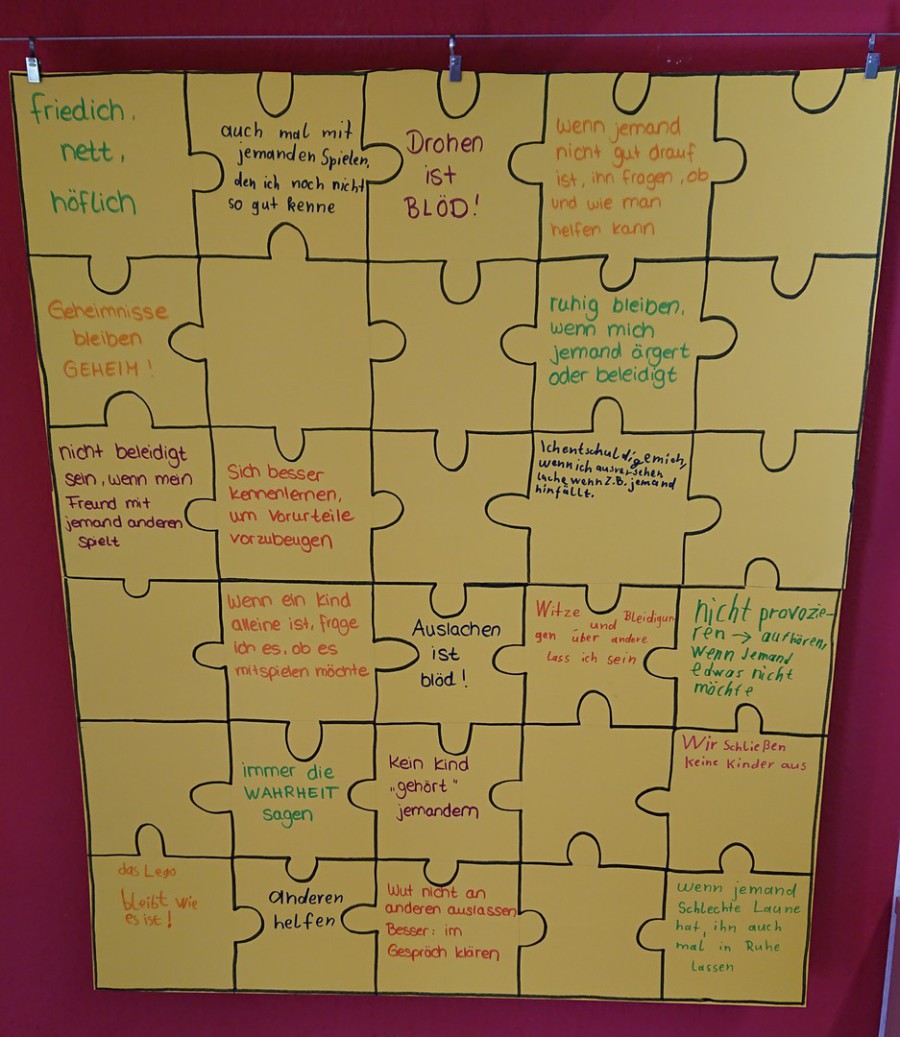 friedlich,
nett,
höflich
auch mal mit
jemanden Spielen,
den ich noch nicht
so gut kenne
Drohen
ist
BLÖD!
wenn jemand
nicht gut drauf
ist, ihn fragen, ob
und wie man
helfen kann
Geheimnisse
bleiben
GEHEIM!
ruhig bleiben,
wenn mich
jemand ärgert
oder beleidigt
nicht beleidigt
sein, wenn mein
Freund mit
jemand anderen
spielt
Sich besser
kennenlernen,
um Vorurteile
vorzubeugen
Ich entschuldige mich,
wenn ich ausversehen
lache, wenn z.B. jemand
hinfällt.
Wenn ein Kind
alleine ist, frage
ich es, ob es
mitspielen möchte
Auslachen
ist
blöd!
Witze
und Bleidigun
gen über andere
lass ich sein
nicht provozie-
ren → aufhören,
wenn Jemand
edwas nicht
möchte
immer die
WAHRHEIT
sagen
Kein Kind
„gehört"
jemandem
Wir Schließen
keine Kinder aus
das Lego
bleibt wie
es ist!
anderen
helfen
Wut nicht an
anderen auslassen
Besser: im
Gespräch klären
wenn jemand
Schlechte Laune
hat, ihn auch
mal in Ruhe
lassen